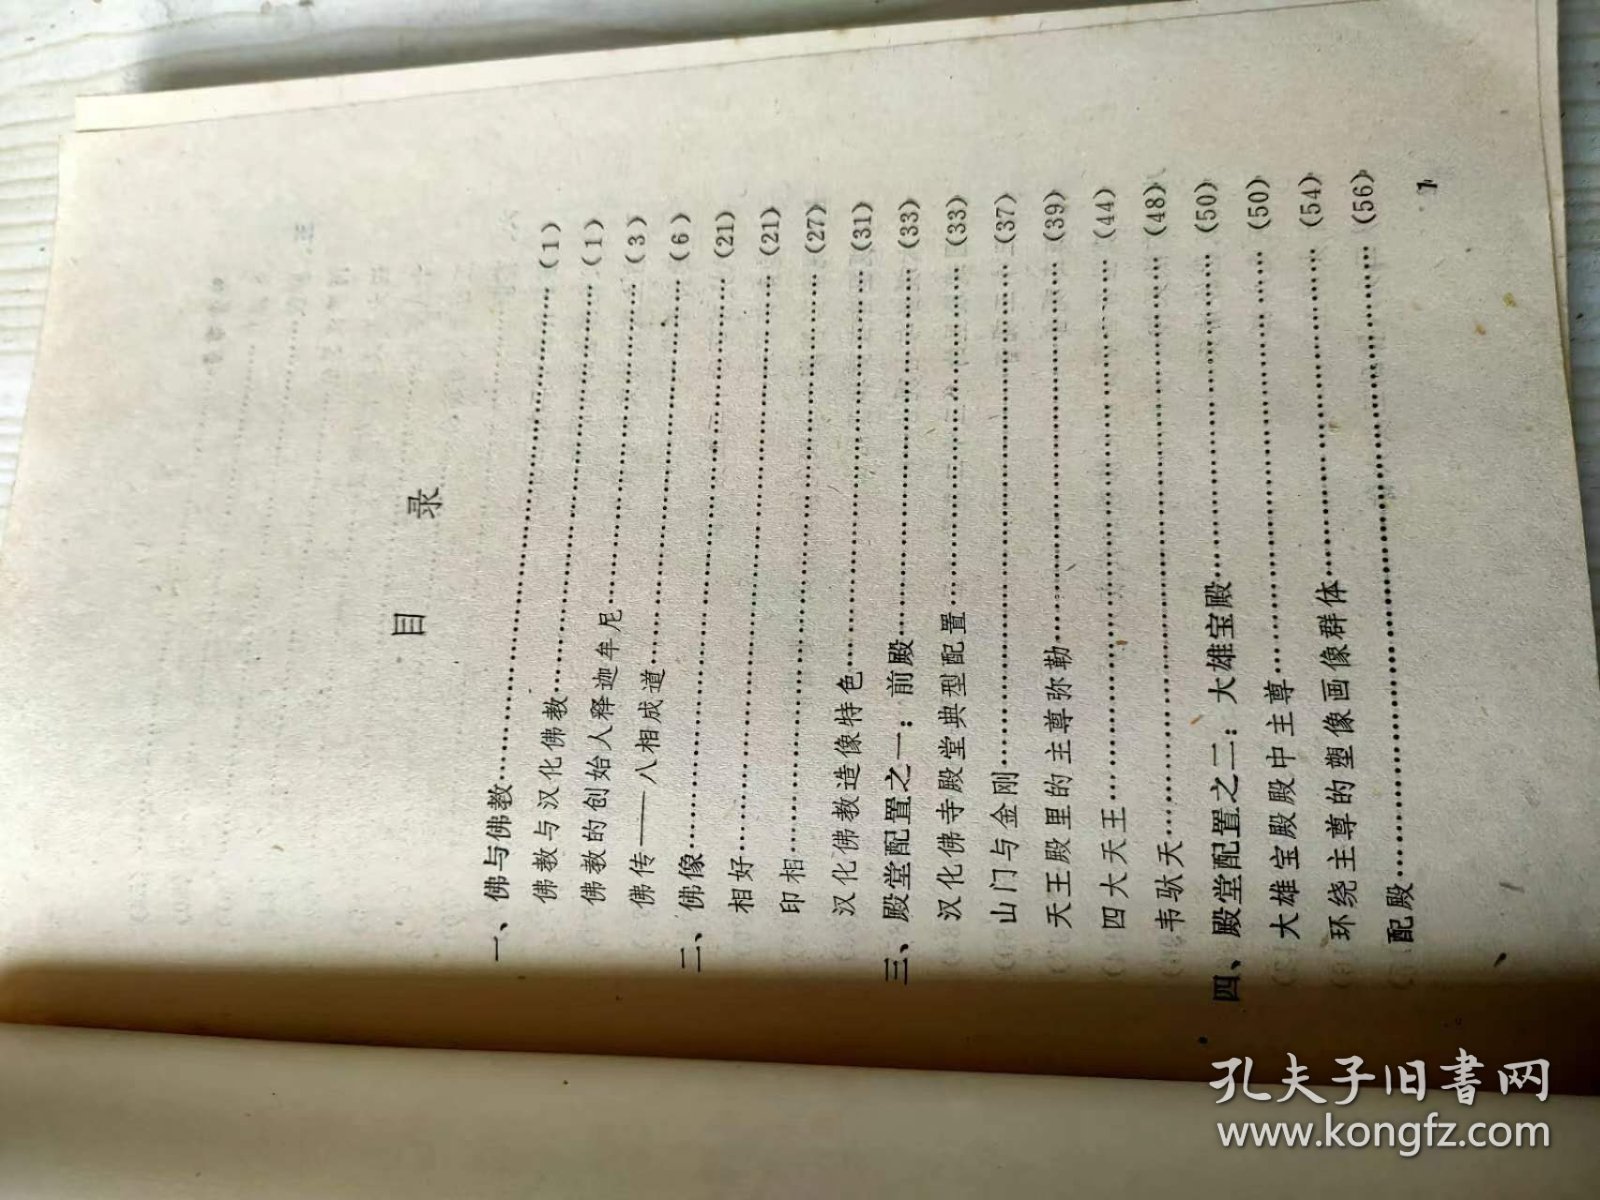 目 录
一、佛与佛教……(1)
佛教与汉化佛教……(1)
佛教的创始人释迦牟尼……(3)
佛传——八相成道……(6)
二、佛像……(21)
相好……(21)
印相……(27)
汉化佛教造像特色……(31)
三、殿堂配置之一：前殿……(33)
汉化佛寺殿堂典型配置……(33)
山门与金刚……(37)
天王殿里的主尊弥勒……(39)
四大天王……(44)
韦驮天……(48)
四、殿堂配置之二：大雄宝殿……(50)
大雄宝殿殿中主尊……(50)
环绕主尊的塑像画像群体……(54)
配殿……(56)
1
孔夫子旧书网
www.kongfz.com